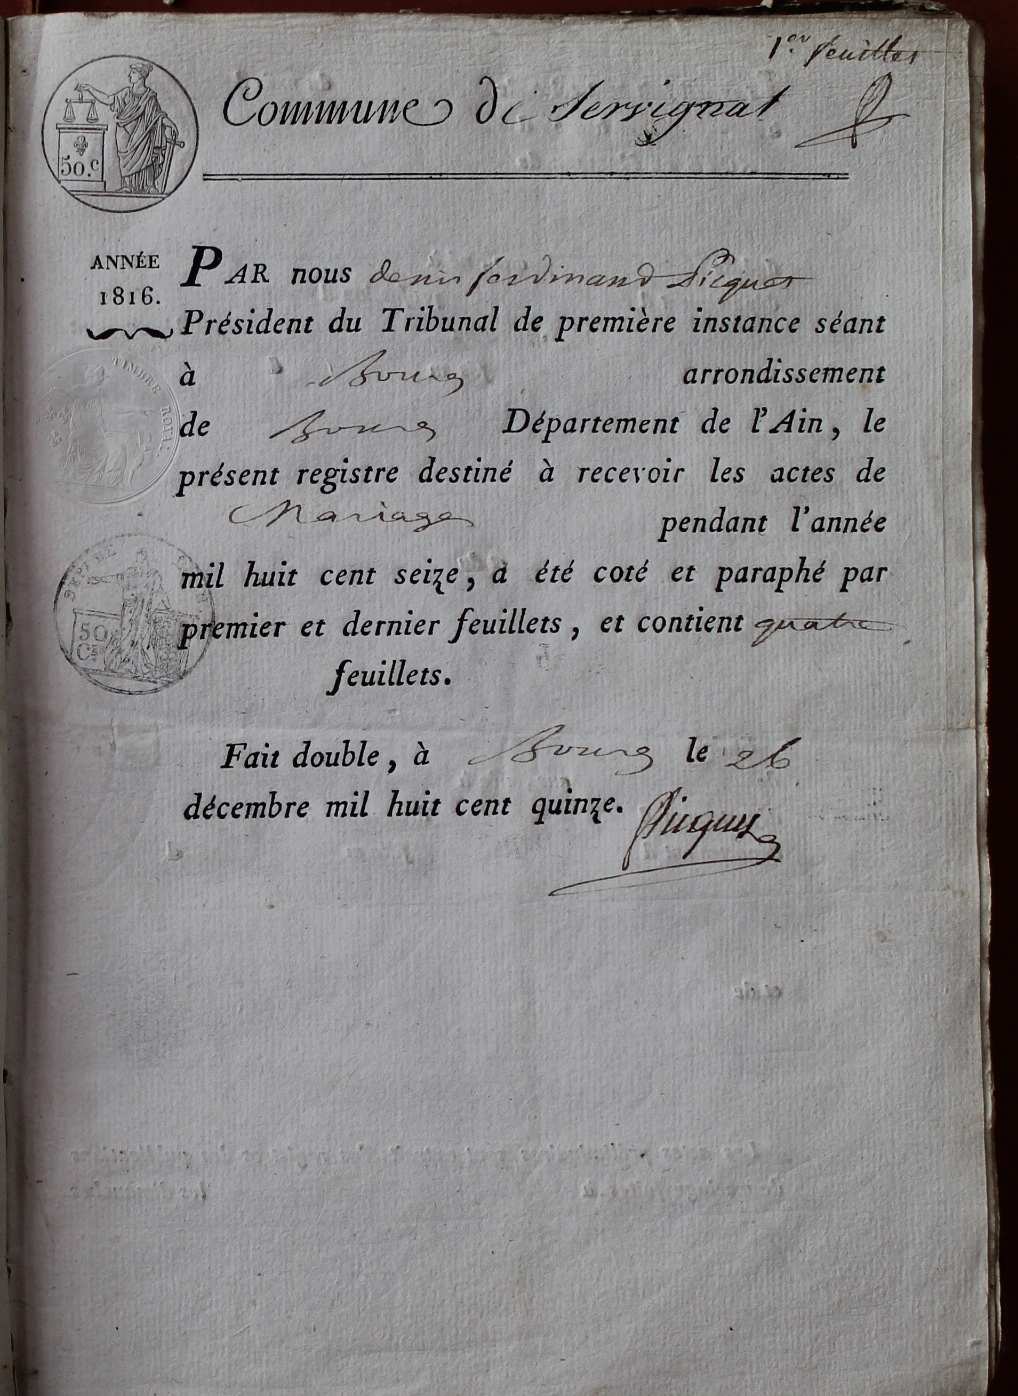 1er feuillet
Commune de Servignat
50.c
ANNÉE
1816.
PAR nous denis ferdinand Picquet
Président du Tribunal de première instance séant
à Bourg arrondissement
de Bourg Département de l'Ain, le
présent registre destiné à recevoir les actes de
Mariage pendant l'année
mil huit cent seize, a été coté et paraphé par
premier et dernier feuillets, et contient quatre
feuillets.
TIMBRE ROYAL
50
Cs
Fait double, à Bourg le 26
décembre mil huit cent quinze.
Picquet